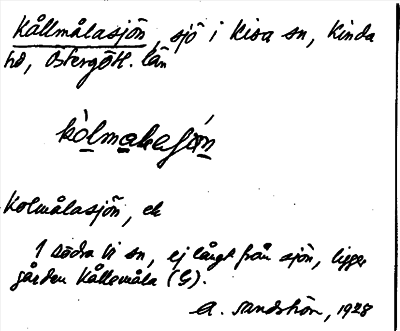 Kållmålasjön, sjö i Kisa sn, Kinda
hd, Östergötl. län
kòlmalasjön
Kolmålasjön, ek
I södra delen av sn, ej långt från sjön, ligger
gården Kållemåla (G).
A. Sandström, 1928